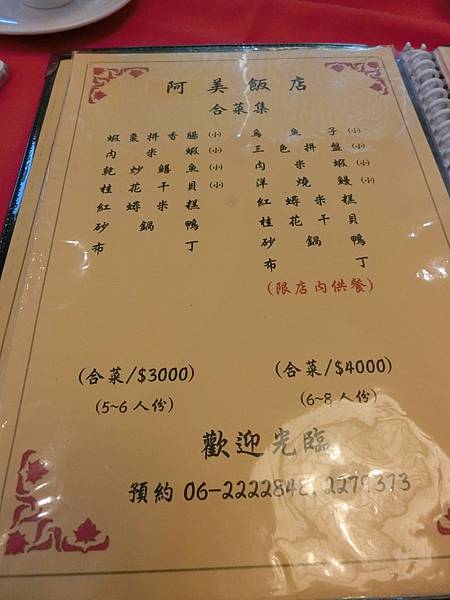 阿美飯店
合菜集
蝦棗拼香腸(小)
肉米蝦(小)
乾炒鱔魚(小)
桂花干貝(小)
紅蟳米糕
砂鍋鴨
布丁
(合菜/$3000)
(5~6人份)
烏魚子(小)
三色拼盤(小)
肉米蝦(小)
洋燒鰻(小)
紅蟳米糕
桂花干貝
砂鍋鴨
布丁
(限店內供餐)
(合菜/$4000)
(6~8人份)
歡迎光臨
預約 06-2222848, 2279373